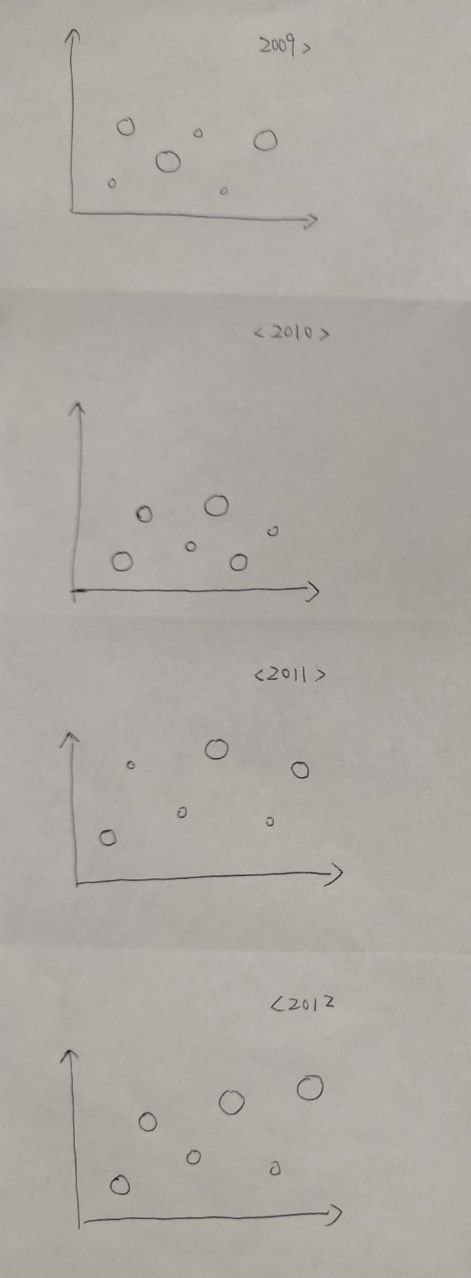 2009>
<2010>
<2011>
<2012